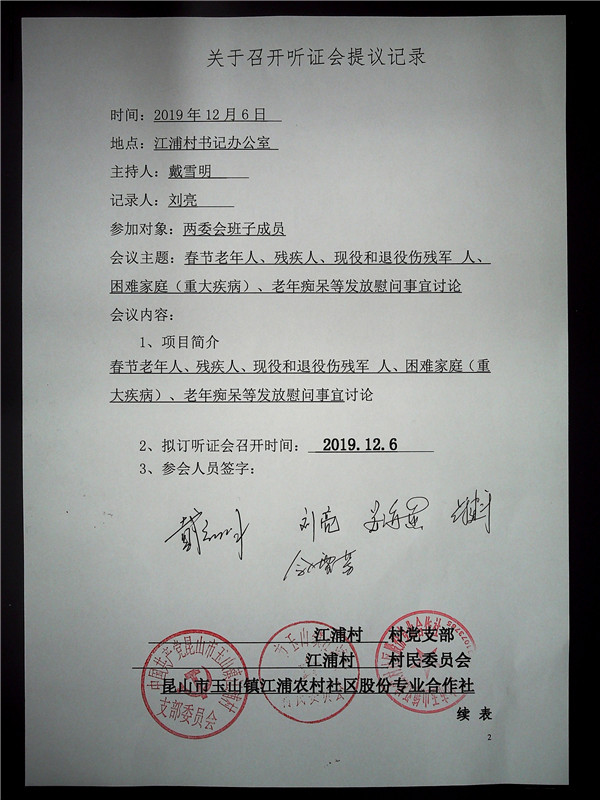 关于召开听证会提议记录
时间：2019年12月6日
地点：江浦村书记办公室
主持人：戴雪明
记录人：刘亮
参加对象：两委会班子成员
会议主题：春节老年人、残疾人、现役和退役伤残军 人、
困难家庭（重大疾病）、老年痴呆等发放慰问事宜讨论
会议内容：
1、项目简介
春节老年人、残疾人、现役和退役伤残军 人、困难家庭（重
大疾病）、老年痴呆等发放慰问事宜讨论
2、拟订听证会召开时间： 2019.12.6
3、参会人员签字：
刘亮
江浦村 村党支部
江浦村 村民委员会
昆山市玉山镇江浦农村社区股份专业合作社
中国共产党昆山市玉山镇江浦村
支部委员会
村民委员会
续 表
2